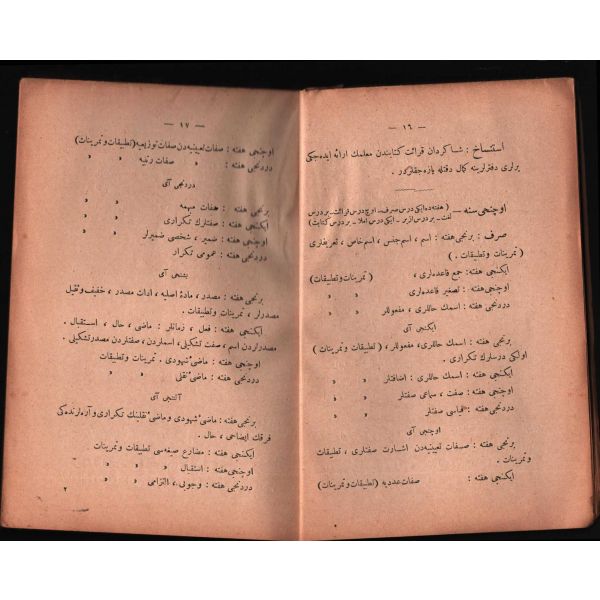 — ١٦ —
استنساخ : شاكردان قرائت كتابندن معلمك ارائه ايده جكى
يرلرى دفترلرينه كمال دقتله يازه جقلردر .
اوچنجى سنه — (هفته ده ايكى درس صرف ـ اوچ درس قرائت ـ بر درس
لغت ـ بر درس ازبر ـ ايكى درس املا ـ بر درس كتابت)
صرف : برنجى هفته : اسم ، اسم جنس ، اسم خاص ، تعريفلرى
( تمرينات وتطبيقات . )
ايكنجى هفته : جمع قاعده لرى ( تمرينات وتطبيقات )
اوچنجى هفته : تصغير قاعده لرى » »
دردنجى هفته : اسمك حاللرى ، مفعوللر » »
ايكنجى آى
برنجى هفته : اسمك حاللرى ، مفعوللر ، ( تطبيقات وتمرينات )
اولكى درسلرك تكرارى .
ايكنجى هفته : اسمك حاللرى ، اضافتلر » »
اوچنجى هفته : صفت ، سماعى صفتلر » »
دردنجى هفته : قياسى صفتلر » »
اوچنجى آى
برنجى هفته : صفات تعيينيه دن اشارت صفتلرى ، تطبيقات
وتمرينات .
ايكنجى هفته : صفات عدديه ( تطبيقات وتمرينات )
— ١٧ —
اوچنجى هفته : صفات تعيينيه دن صفات توزيعيه (تطبيقات وتمرينات)
دردنجى هفته : » صفات رتبيه » »
دردنجى آى
برنجى هفته : صفات مبهمه » »
ايكنجى هفته : صفتلرك تكرارى » »
اوچنجى هفته : ضمير ، شخصى ضميرلر » »
دردنجى هفته : عمومى تكرار
بشنجى آى
برنجى هفته : مصدر ، مادۀ اصليه ، ادات مصدر ، خفيف وثقيل
مصدرلر ، تمرينات وتطبيقات .
ايكنجى هفته : فعل ، زمانلر : ماضى ، حال ، استقبال .
مصدرلردن اسم ، صفت تشكيلى ، اسملردن ، صفتلردن مصدر تشكيلى .
اوچنجى هفته : ماضئ شهودى . تمرينات وتطبيقات
دردنجى هفته : ماضئ نقلى » »
آلتنجى آى
برنجى هفته : ماضئ شهودى وماضئ نقلينك تكرارى و آره لرنده كى
فرقك ايضاحى ، حال .
ايكنجى هفته : مضارع صيغه سى تطبيقات وتمرينات
اوچنجى هفته : استقبال » »
دردنجى هفته : وجوبى ، التزامى » »
٢